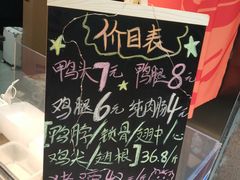 价目表
鸭头7元 鸭腿8元
鸡腿6元 纯肉肠4元
[鸭脖/锁骨/翅中/心
鸡尖/翅根]36.8/斤